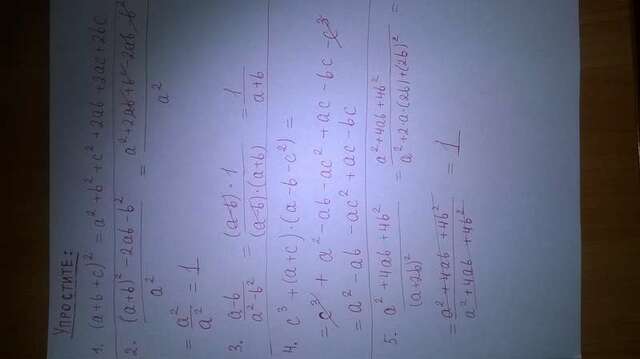 Упростите:
1. (a+b+c)² = a²+b²+c²+2ab+2ac+2bc
2. (a+b)²-2ab-b² / a² = a²+2ab+b²-2ab-b² / a²
= a²/a² = 1
3. a-b / a²-b² = (a-b)·1 / (a-b)·(a+b) = 1 / a+b
4. c³+(a+c)·(a-b-c²) =
= c³ + a²-ab-ac²+ac-bc-c³
= a²-ab-ac²+ac-bc
5. a²+4ab+4b² / (a+2b)² = a²+4ab+4b² / a²+2·a·(2b)+(2b)² =
= a²+4ab+4b² / a²+4ab+4b² = 1